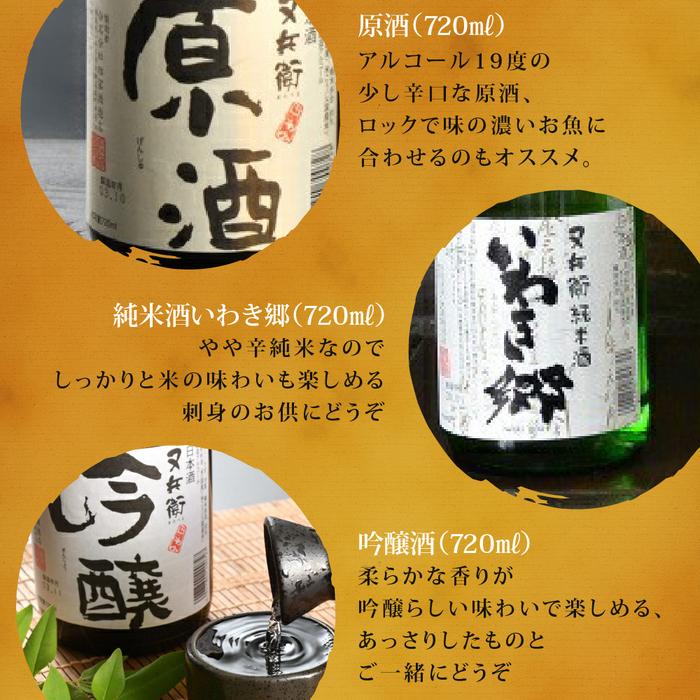 原酒(720㎖)
アルコール19度の
少し辛口な原酒、
ロックで味の濃いお魚に
合わせるのもオススメ。
又兵衛
原酒
げんしゅ
03.10
純米酒いわき郷(720㎖)
やや辛純米なので
しっかりと米の味わいも楽しめる
刺身のお供にどうぞ
又兵衛 純米酒
いわき郷
日本酒
又兵衛
吟醸
吟醸酒(720㎖)
柔らかな香りが
吟醸らしい味わいで楽しめる、
あっさりしたものと
ご一緒にどうぞ